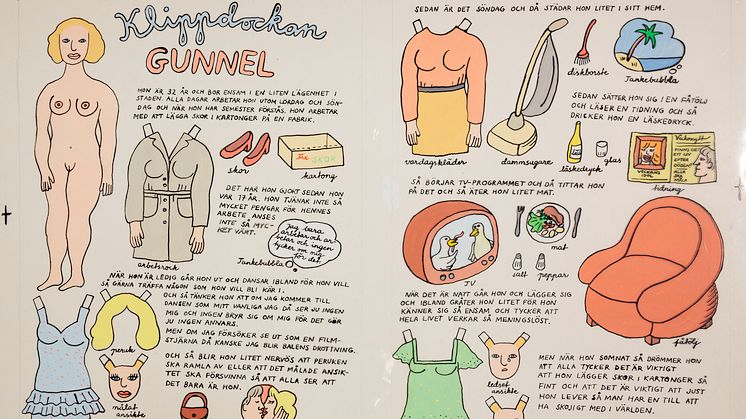 Klippdockan
GUNNEL
HON ÄR 32 ÅR OCH BOR ENSAM I EN LITEN LÄGENHET I
STADEN. ALLA DAGAR ARBETAR HON UTOM LÖRDAG OCH SÖN-
DAG OCH NÄR HON HAR SEMESTER FÖRSTÅS. HON ARBETAR
MED ATT LÄGGA SKOR I KARTONGER PÅ EN FABRIK.
skor
SKOR
kartong
DET HAR HON GJORT SEDAN HON
VAR 17 ÅR. HON TJÄNAR INTE SÅ
MYCKET PENGAR FÖR HENNES
ARBETE ANSES
INTE SÅ MYC-
KET VÄRT.
Jag bara
arbetar och ar-
betar och ingen
tycker om mig
för det
Tankebubbla
arbetsrock
NÄR HON ÄR LEDIG GÅR HON UT OCH DANSAR IBLAND FÖR HON VILL
SÅ GÄRNA TRÄFFA NÅGON SOM HON VILL BLI KÄR I.
OCH SÅ TÄNKER HON ATT OM JAG KOMMER TILL
DANSEN SOM MITT VANLIGA JAG DÅ SER JU INGEN
MIG OCH INGEN BRYR SIG OM MIG FÖR DET GÖR
JU INGEN ANNARS.
MEN OM JAG FÖRSÖKER SE UT SOM EN FILM-
STJÄRNA DÅ KANSKE JAG BLIR BALENS DROTTNING.
peruk
OCH SÅ BLIR HON LITET NERVÖS ATT PERUKEN
SKA RAMLA AV ELLER ATT DET MÅLADE ANSIK-
TET SKA FÖRSVINNA SÅ ATT ALLA SER ATT
DET BARA ÄR HON.
målat
ansikte
SEDAN ÄR DET SÖNDAG OCH DÅ STÄDAR HON LITET I SITT HEM.
diskborste
Tankebubbla
vardagskläder
dammsugare
SEDAN SÄTTER HON SIG I EN FÅTÖLJ
OCH LÄSER EN TIDNING OCH SÅ
DRICKER HON EN LÄSKEDRYCK.
läskedryck
glas
Veckonytt
FINNS DET
ETT LIV
EFTER
DÖDEN?
VECKANS
IDOL
tidning
SÅ BÖRJAR TV-PROGRAMMET OCH DÅ TITTAR HON
PÅ DET OCH SÅ ÄTER HON LITET MAT.
TV
mat
salt
peppar
NÄR DET ÄR NATT GÅR HON OCH LÄGGER SIG
OCH IBLAND GRÅTER HON LITET FÖR HON
KÄNNER SIG SÅ ENSAM OCH TYCKER ATT
HELA LIVET VERKAR SÅ MENINGSLÖST.
fåtölj
ledset
ansikte
MEN NÄR HON SOMNAT SÅ DRÖMMER HON
ATT ALLA TYCKER DET ÄR VIKTIGT
ATT HON LÄGGER SKOR I KARTONGER SÅ
FINT OCH ATT DET ÄR VIKTIGT ATT JUST
HON LEVER SÅ MAN HAR EN TILL ATT
HA SKOJIGT MED I VÄRLDEN.